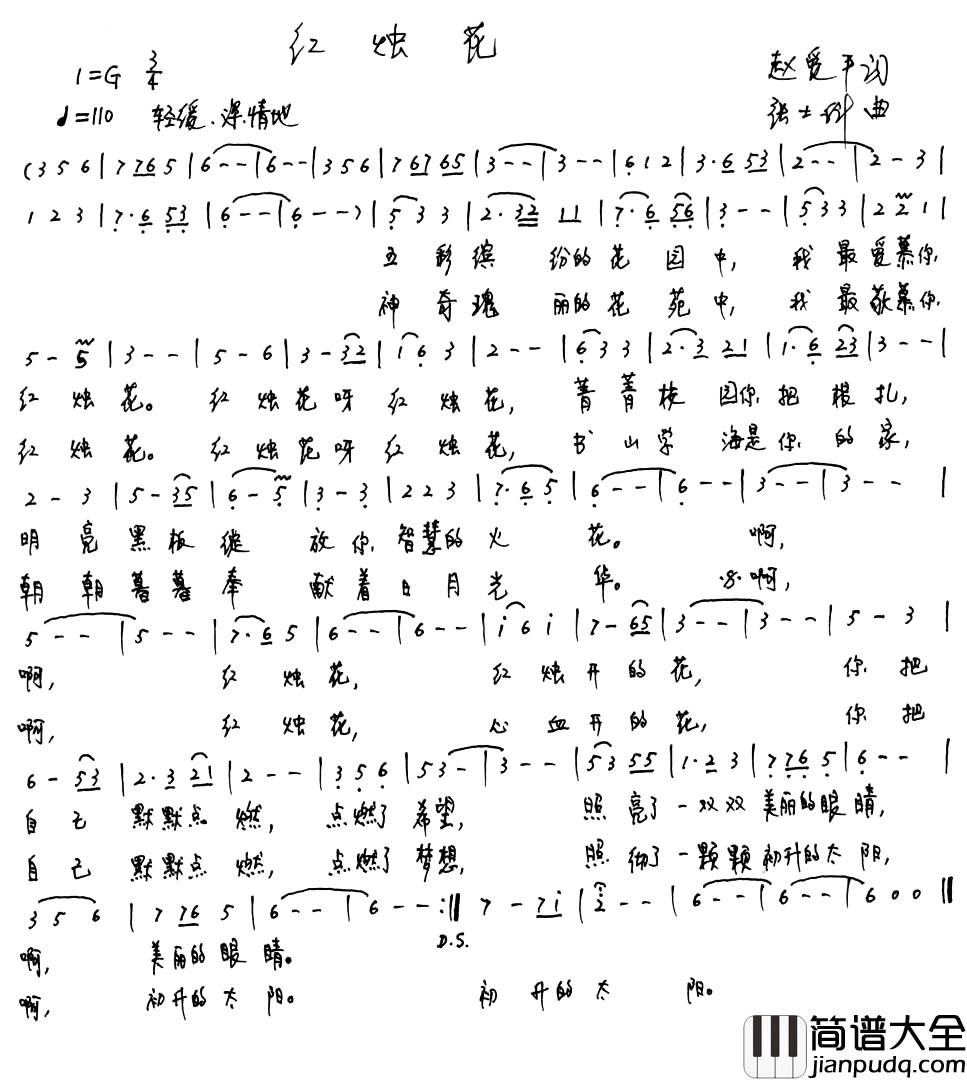 红烛花
1=G 3/4
赵爱平词
♩=110 轻缓、深情地
张士 曲
(3 5 6 | 7 76 5 | 6 - - | 6 - - | 3 5 6 | 7 67 65 | 3 - - | 3 - - | 6 1 2 | 3·6 53 | 2 - - | 2 - 3 |
1 2 3 | 7·6 53 | 6 - - | 6 - - ) | 5 3 3 | 2·32 11 | 7·6 56 | 3 - - | 5 3 3 | 2 2 1 |
五彩缤纷的花园中, 我最爱慕你
神奇瑰丽的花苑中, 我最敬慕你
5 - 5 | 3 - - | 5 - 6 | 3 - 32 | i 6 3 | 2 - - | 6 3 3 | 2·3 21 | 1·6 23 | 3 - - |
红烛花。 红烛花呀红烛花, 菁菁校园你把根扎,
红烛花。 红烛花呀红烛花, 书山学海是你的家,
2 - 3 | 5 - 35 | 6 - 5 | 3 - 3 | 2 2 3 | 7·6 5 | 6 - - | 6 - - | 3 - - | 3 - - |
明亮黑板绽放你智慧的火花。 啊,
朝朝暮暮奉献着日月光华。 𝄋 啊,
5 - - | 5 - - | 7·6 5 | 6 - - | 6 - - | i 6 i | 7 - 65 | 3 - - | 3 - - | 5 - 3 |
啊, 红烛花, 红烛开的花, 你把
啊, 红烛花, 心血开的花, 你把
6 - 53 | 2·3 21 | 2 - - | 3 5 6 | 53 - | 3 - - | 5 3 55 | 1·2 3 | 7 76 5 | 6 - - |
自己默默点燃, 点燃了希望, 照亮了一双双美丽的眼睛,
自己默默点燃, 点燃了梦想, 照彻了一颗颗初升的太阳,
3 5 6 | 7 76 5 | 6 - - | 6 - - :‖ 7 - 7i | 2 - - | 6 - - | 6 - - | 6 0 0 ‖
D.S.
啊, 美丽的眼睛。
啊, 初升的太阳。 初升的太阳。
简谱大全
jianpudq.com